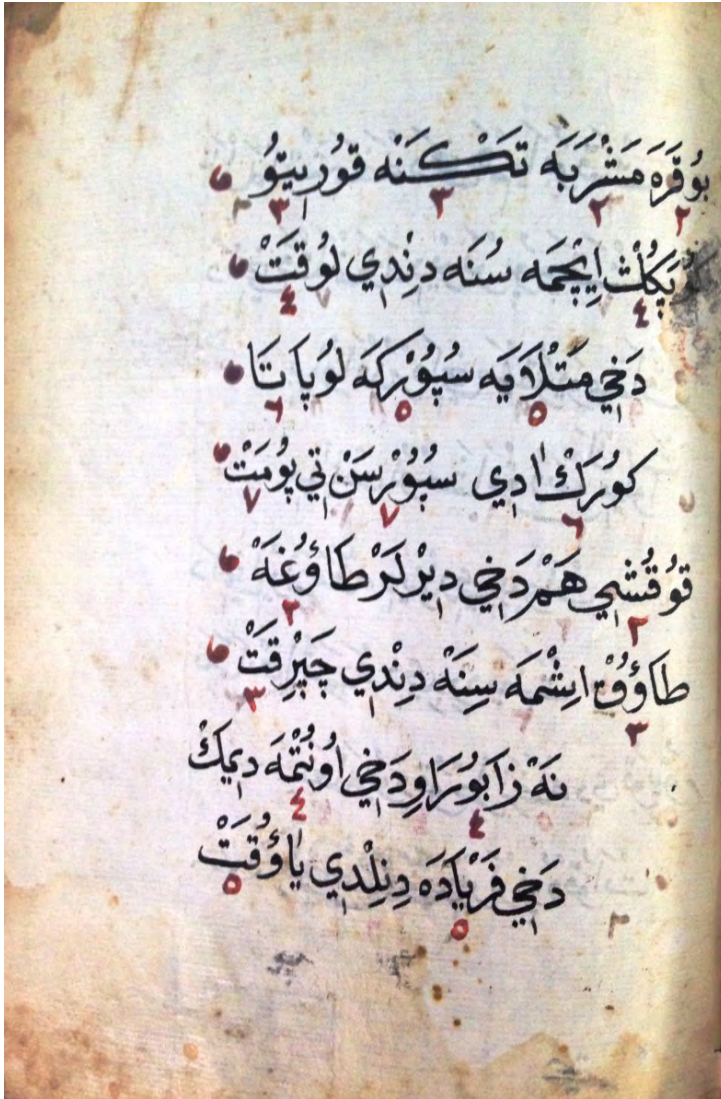 بُوقَرَه مَشْرَبَه تَكْنَه قُورِيتُو
اِيْچمَه سُنَه دنِدي لوُقَتْ
دَخِي مَتْلَايَه سُپُوُرْكَه لوُپَاتَا
كوُرَكْ اٰدِي سُپُوُرْسَنْ تِي پوُمَتْ
قوُقُشِي هَمْ دَخِي دِيرْلَرْ طَاؤُغَهْ
طَاؤُقْ اِشْمَه سِنَهْ دِنْدِي چَپِرِقَتْ
نَهْ زَابوُرَاوِ دَخِي اوُنُتْمَه دِيمَكْ
دَخِي فَرْيَادَه دِنِلْدِي يَاؤُقَتْ